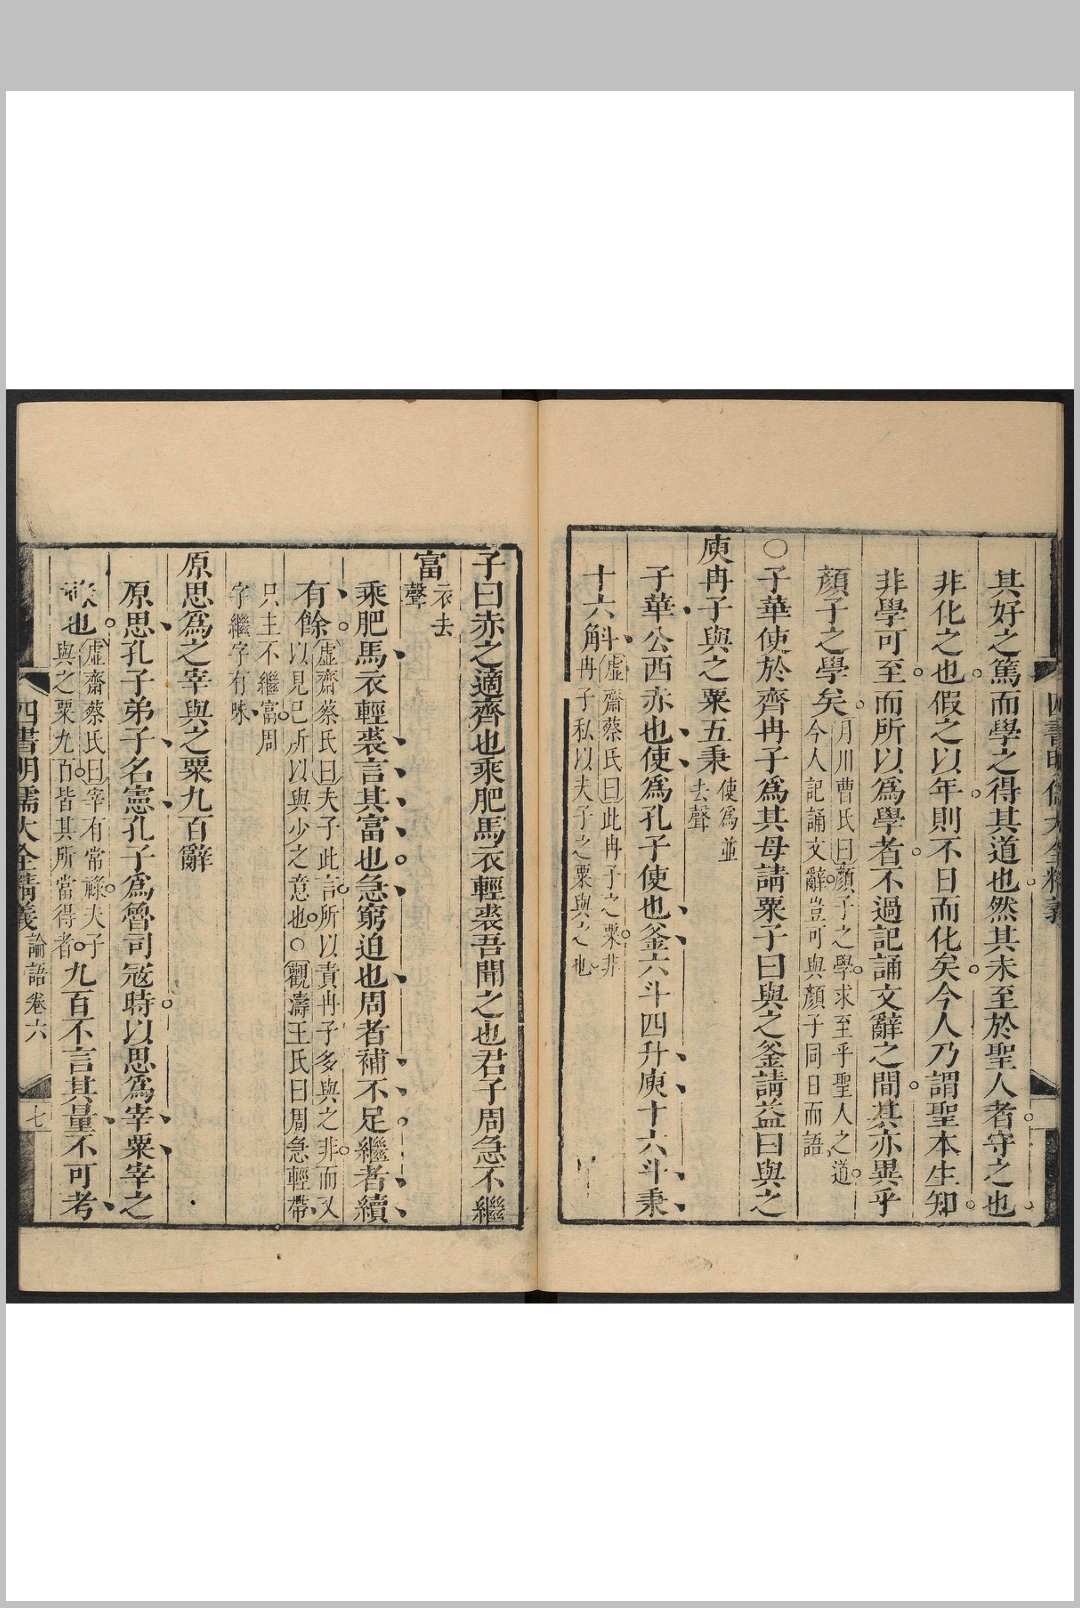 其好之篤而學之得其道也然其未至於聖人者守之也
非化之也假之以年則不日而化矣今人乃謂聖本生知
非學可至而所以爲學者不過記誦文辭之間其亦異乎
顏子之學矣
月川曹氏曰顏子之學求至乎聖人之道
今人記誦文辭豈可與顏子同日而語
○子華使於齊冉子爲其母請粟子曰與之釜請益曰與之
庾冉子與之粟五秉
使爲並
去聲
子華公西赤也使爲孔子使也釜六斗四升庾十六斗秉
十六斛
虛齋蔡氏曰此冉子之粟非
冉子私以夫子之粟與之也
子曰赤之適齊也乘肥馬衣輕裘吾聞之也君子周急不繼
富
衣去
聲
乘肥馬衣輕裘言其富也急窮迫也周者補不足繼者續
有餘
虛齋蔡氏曰夫子此言所以責冉子多與之非而又
以見己所以與少之意也○觀濤王氏曰周急輕帶
只主不繼富周
字繼字有味
原思爲之宰與之粟九百辭
原思孔子弟子名憲孔子爲魯司寇時以思爲宰粟宰之
祿也
虛齋蔡氏曰宰有常祿夫子
與之粟九百皆其所當得者
九百不言其量不可考
四書明儒大全精義
論語卷六
七